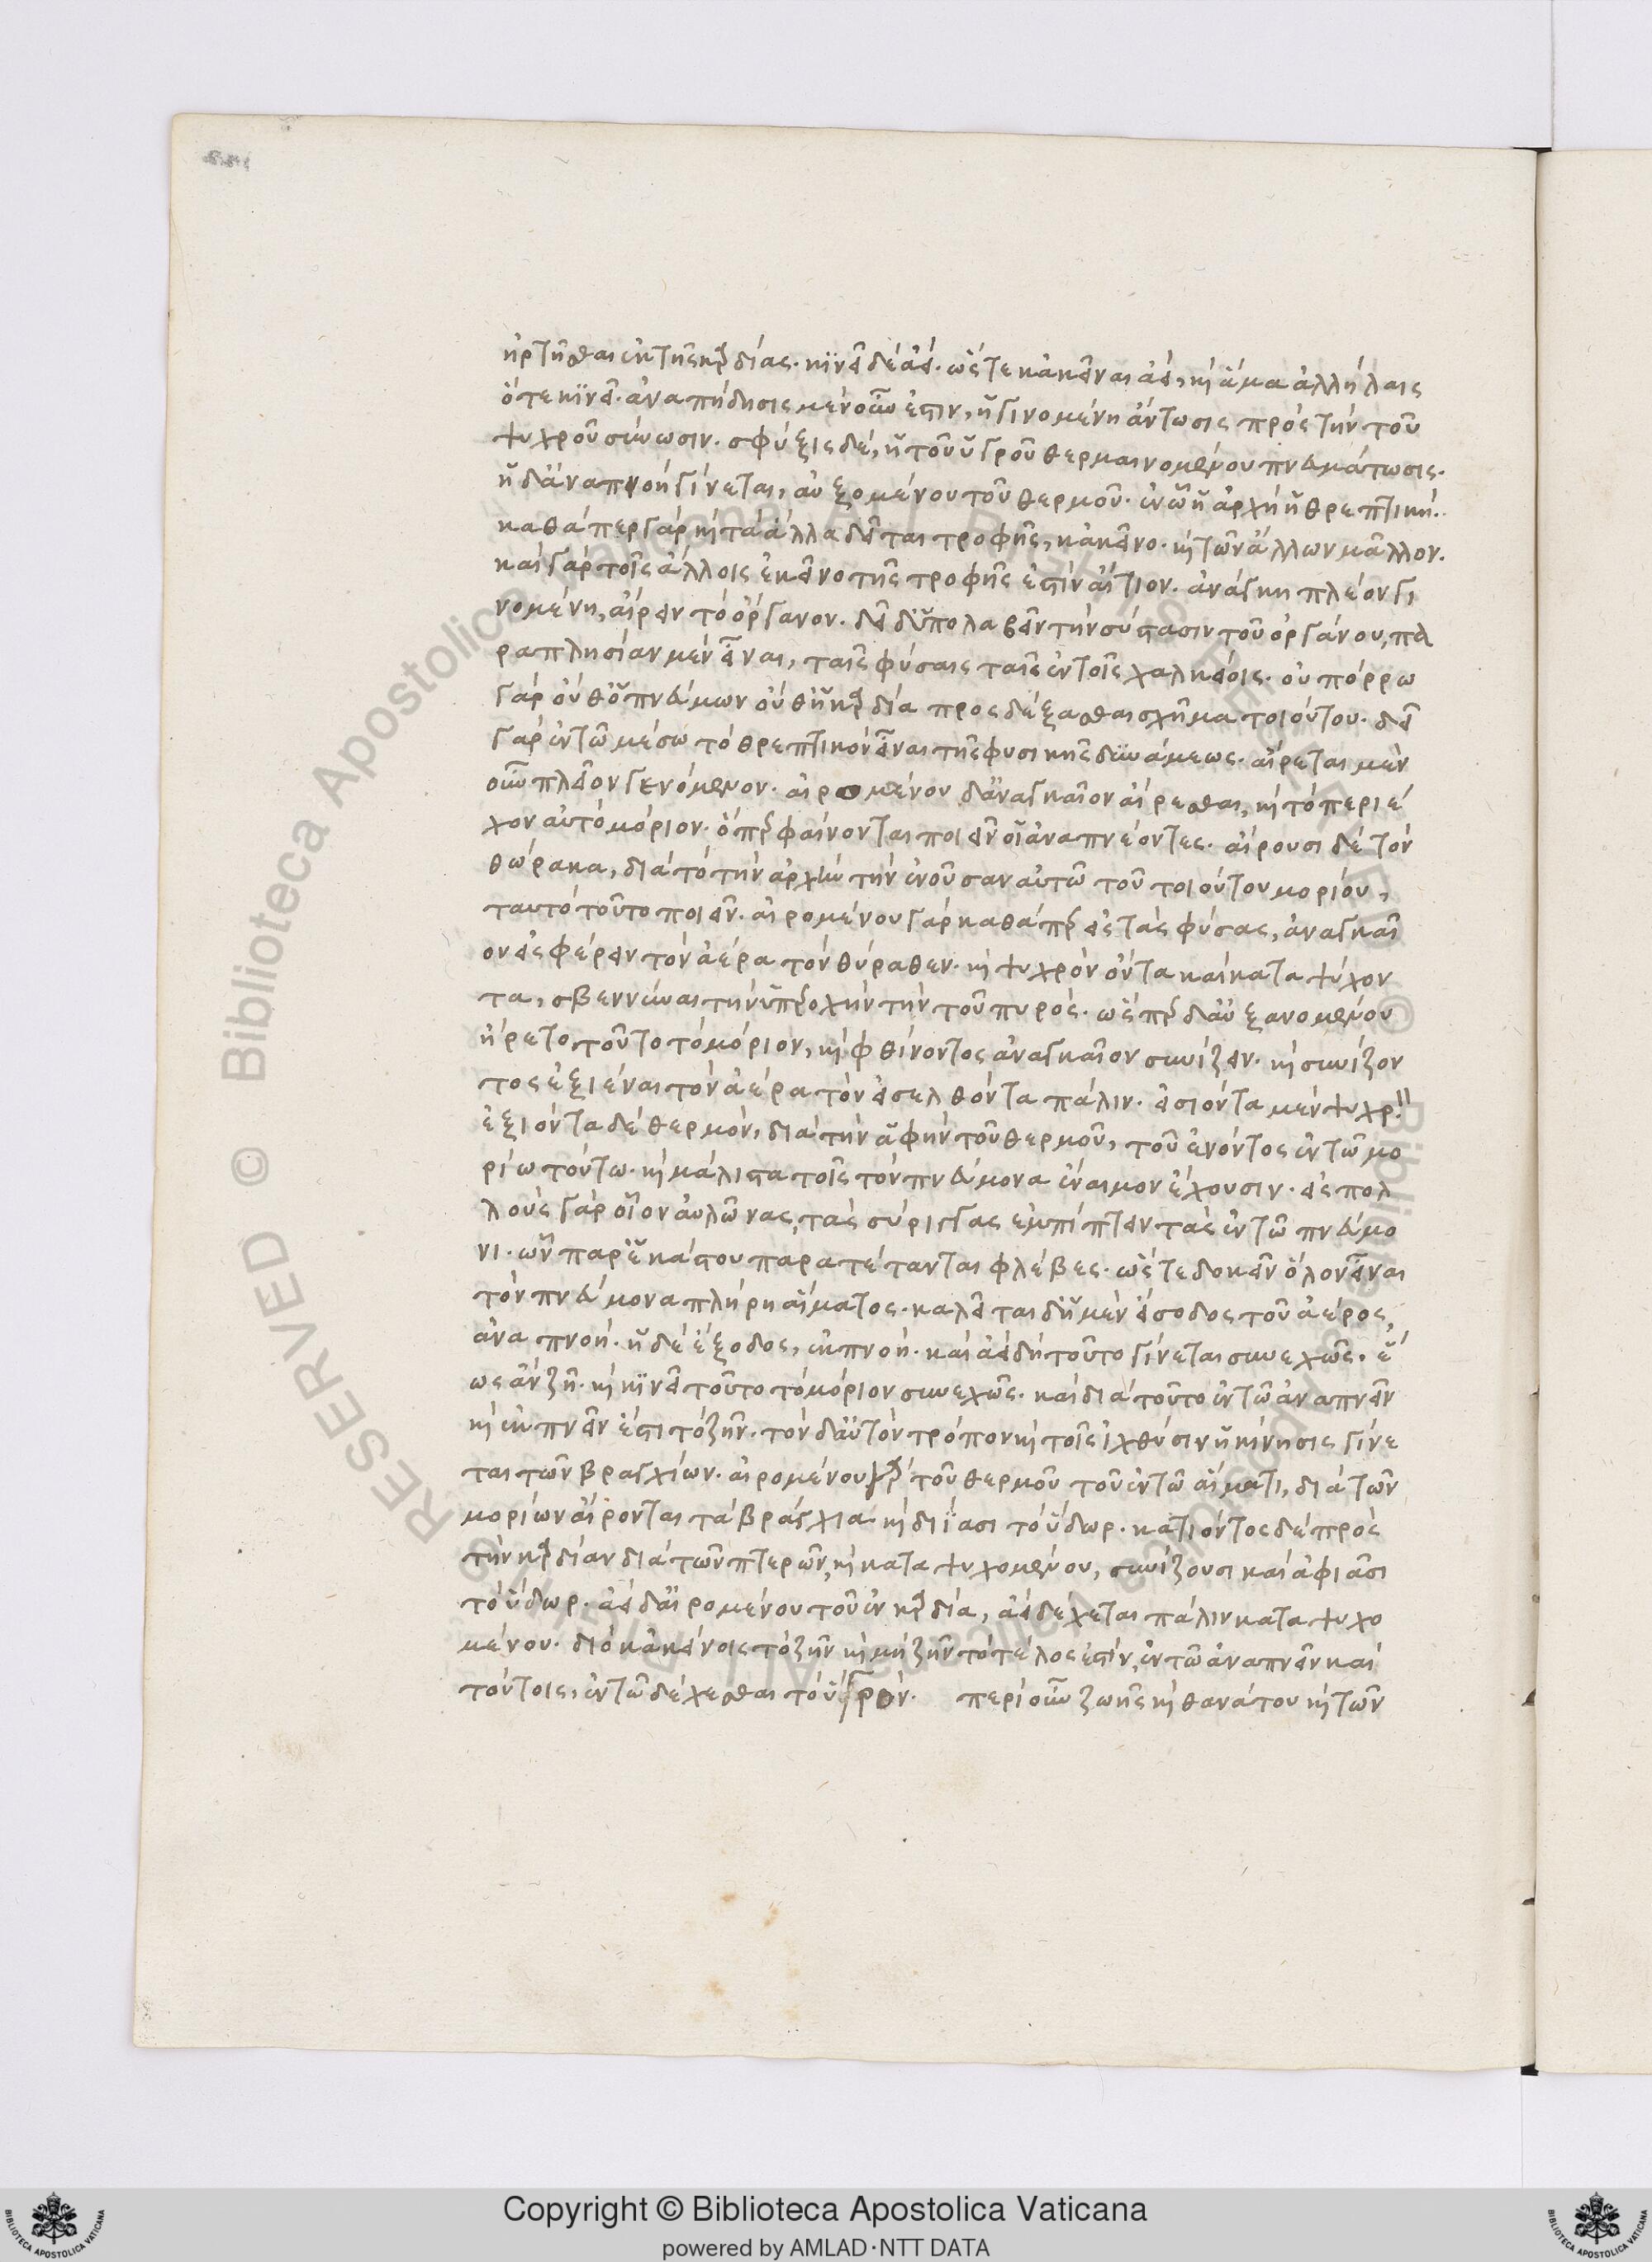 ἠρτῆσθαι ἐκ τῆς καρδίας. κινεῖ δὲ ἀεί. ὥστε κἀκεῖναι ἀεί, καὶ ἅμα ἀλλήλαις
ὅτε κινεῖ. ἀναπήδησις μὲν οὖν ἐστιν, ἡ γινομένη ἄντωσις πρὸς τὴν τοῦ
ψυχροῦ σύνωσιν. σφύξις δὲ, ἡ τοῦ ὑγροῦ θερμαινομένου πνευμάτωσις.
ἡ δ' ἀναπνοὴ γίνεται, αὐξομένου τοῦ θερμοῦ. ἐν ᾧ ἡ ἀρχὴ ἡ θρεπτική.
καθάπερ γὰρ καὶ τὰ ἄλλα δεῖται τροφῆς, κἀκεῖνο. καὶ τῶν ἄλλων μᾶλλον.
καὶ γὰρ τοῖς ἄλλοις ἐκεῖνο τῆς τροφῆς ἐστὶν αἴτιον. ἀνάγκη πλέον γι
νομένη, αἴρειν τὸ ὄργανον. δεῖ δ' ὑπολαβεῖν τὴν σύστασιν τοῦ ὀργάνου, πα
ραπλησίαν μὲν εἶναι, ταῖς φύσαις ταῖς ἐν τοῖς χαλκείοις. οὐ πόρρω
γὰρ οὔθ' ὁ πνεύμων οὔθ' ἡ καρδία προσδέξασθαι σχῆμα τοιούτου. δεῖ
γὰρ ἐν τῷ μέσω τὸ θρεπτικὸν εἶναι τῆς φυσικῆς δυνάμεως. αἴρεται μὲν
οὖν πλεῖον γενόμενον. αἰρομένου δ' ἀναγκαῖον αἴρεσθαι, καὶ τὸ περιέ
χον αὐτὸ μόριον. ὅπερ φαίνονται ποιεῖν οἱ ἀναπνέοντες. αἴρουσι δὲ τὸν
θώρακα, διὰ τὸ τὴν ἀρχὴν τὴν ἐνοῦσαν αὐτῶ τοῦ τοιούτου μορίου,
ταυτὸ τοῦτο ποιεῖν. αἰρομένου γὰρ καθάπερ εἰς τὰς φύσας, ἀναγκαῖ
ον εἰσφέρειν τὸν ἀέρα τὸν θύραθεν. καὶ ψυχρὸν ὄντα καὶ καταψύχον
τα, σβεννύναι τὴν ὑπεροχὴν τὴν τοῦ πυρός. ὥσπερ δ' αὐξανομένου
ᾔρετο τοῦτο τὸ μόριον, καὶ φθίνοντος ἀναγκαῖον συνίζειν. καὶ συνίζον
τος ἐξιέναι τὸν ἀέρα τὸν εἰσελθόντα πάλιν. εἰσιόντα μὲν ψυχρὸν
ἐξιόντα δὲ θερμὸν, διὰ τὴν ἁφὴν τοῦ θερμοῦ, τοῦ ἐνόντος ἐν τῶ μο
ρίω τούτω. καὶ μάλιστα τοῖς τὸν πνεύμονα ἔναιμον ἔχουσιν. εἰς πολ
λοὺς γὰρ οἷον αὐλῶνας, τὰς σύριγγας ἐμπίπτειν τὰς ἐν τῶ πνεύμο
νι. ὧν παρ' ἑκάστου παρατέτανται φλέβες. ὥστε δοκεῖν ὅλον εἶναι
τὸν πνεύμονα πλήρη αἵματος. καλεῖται δ' ἡ μὲν εἴσοδος τοῦ ἀέρος,
ἀναπνοή. ἡ δὲ ἔξοδος, ἐκπνοή. καὶ ἀεὶ δὴ τοῦτο γίνεται συνεχῶς. ἕ
ως ἂν ζῇ. καὶ κινεῖ τοῦτο τὸ μόριον συνεχῶς. καὶ διὰ τοῦτο ἐν τῶ ἀναπνεῖν
καὶ ἐκπνεῖν ἐστὶ τὸ ζῆν. τὸν δ' αὐτὸν τρόπον καὶ τοῖς ἰχθύσιν ἡ κίνησις γίνε
ται τῶν βραγχίων. αἰρομένου γὰρ τοῦ θερμοῦ τοῦ ἐν τῶ αἵματι, διὰ τῶν
μορίων αἴρονται τὰ βράγχια καὶ διΐασι τὸ ὕδωρ. κατιόντος δὲ πρὸς
τὴν καρδίαν διὰ τῶν πτερῶν, καὶ καταψυχομένου, συνίζουσι καὶ ἀφιᾶσι
τὸ ὕδωρ. ἀεὶ δ' αἰρομένου τοῦ ἐν καρδία, ἀεὶ δέχεται πάλιν καταψυχο
μένου. διὸ κἀκείνοις τὸ ζῆν καὶ μὴ ζῆν τὸ τέλος ἐστὶν, ἐν τῶ ἀναπνεῖν καὶ
τούτοις, ἐν τῶ δέχεσθαι τὸ ὑγρόν. περὶ οὖν ζωῆς καὶ θανάτου καὶ τῶν
Copyright © Biblioteca Apostolica Vaticana
powered by AMLAD·NTT DATA